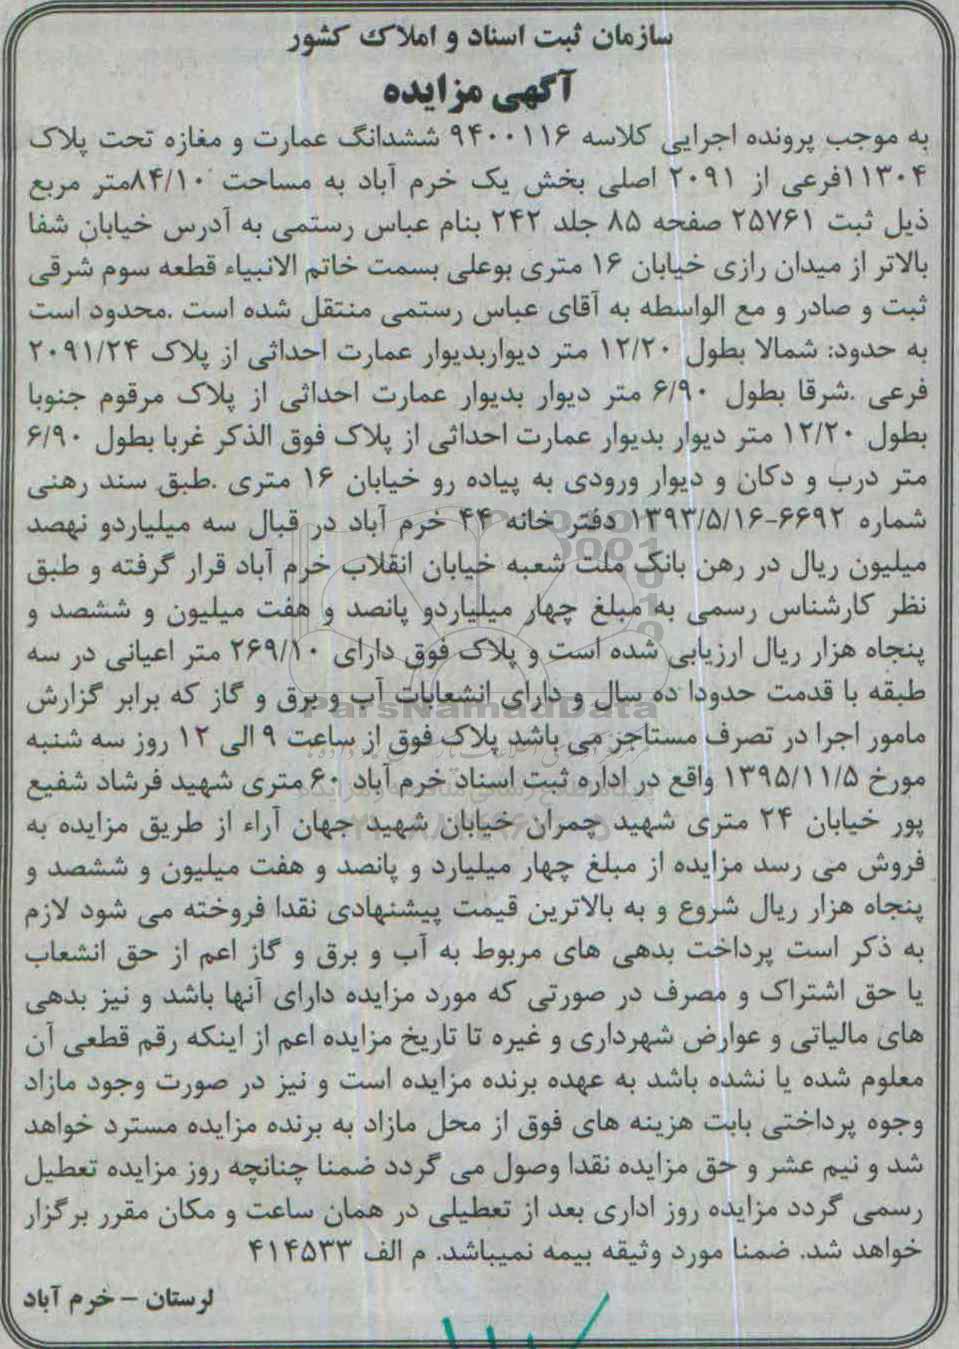 سازمان ثبت اسناد و املاک کشور
آگهی مزایده
به موجب پرونده اجرایی کلاسه ۹۴۰۰۱۱۶ ششدانگ عمارت و مغازه تحت پلاک
۱۱۳۰۴فرعی از ۲۰۹۱ اصلی بخش یک خرم آباد به مساحت ۸۴/۱۰متر مربع
ذیل ثبت ۲۵۷۶۱ صفحه ۸۵ جلد ۲۴۲ بنام عباس رستمی به آدرس خیابان شفا
بالاتر از میدان رازی خیابان ۱۶ متری بوعلی بسمت خاتم الانبیاء قطعه سوم شرقی
ثبت و صادر و مع الواسطه به آقای عباس رستمی منتقل شده است .محدود است
به حدود: شمالا بطول ۱۲/۲۰ متر دیواربدیوار عمارت احداثی از پلاک ۲۰۹۱/۲۴
فرعی .شرقا بطول ۶/۹۰ متر دیوار بدیوار عمارت احداثی از پلاک مرقوم جنوبا
بطول ۱۲/۲۰ متر دیوار بدیوار عمارت احداثی از پلاک فوق الذکر غربا بطول ۶/۹۰
متر درب و دکان و دیوار ورودی به پیاده رو خیابان ۱۶ متری .طبق سند رهنی
شماره ۶۶۹۲-۱۳۹۳/۵/۱۶ دفتر خانه ۴۴ خرم آباد در قبال سه میلیاردو نهصد
میلیون ریال در رهن بانک ملت شعبه خیابان انقلاب خرم آباد قرار گرفته و طبق
نظر کارشناس رسمی به مبلغ چهار میلیاردو پانصد و هفت میلیون و ششصد و
پنجاه هزار ریال ارزیابی شده است و پلاک فوق دارای ۲۶۹/۱۰ متر اعیانی در سه
طبقه با قدمت حدودا ده سال و دارای انشعابات آب و برق و گاز که برابر گزارش
مامور اجرا در تصرف مستاجر می باشد پلاک فوق از ساعت ۹ الی ۱۲ روز سه شنبه
مورخ ۱۳۹۵/۱۱/۵ واقع در اداره ثبت اسناد خرم آباد ۶۰ متری شهید فرشاد شفیع
پور خیابان ۲۴ متری شهید چمران خیابان شهید جهان آراء از طریق مزایده به
فروش می رسد مزایده از مبلغ چهار میلیارد و پانصد و هفت میلیون و ششصد و
پنجاه هزار ریال شروع و به بالاترین قیمت پیشنهادی نقدا فروخته می شود لازم
به ذکر است پرداخت بدهی های مربوط به آب و برق و گاز اعم از حق انشعاب
یا حق اشتراک و مصرف در صورتی که مورد مزایده دارای آنها باشد و نیز بدهی
های مالیاتی و عوارض شهرداری و غیره تا تاریخ مزایده اعم از اینکه رقم قطعی آن
معلوم شده یا نشده باشد به عهده برنده مزایده است و نیز در صورت وجود مازاد
وجوه پرداختی بابت هزینه های فوق از محل مازاد به برنده مزایده مسترد خواهد
شد و نیم عشر و حق مزایده نقدا وصول می گردد ضمنا چنانچه روز مزایده تعطیل
رسمی گردد مزایده روز اداری بعد از تعطیلی در همان ساعت و مکان مقرر برگزار
خواهد شد. ضمنا مورد وثیقه بیمه نمیباشد. م الف ۴۱۴۵۳۳
لرستان - خرم آباد
ParsNamadData